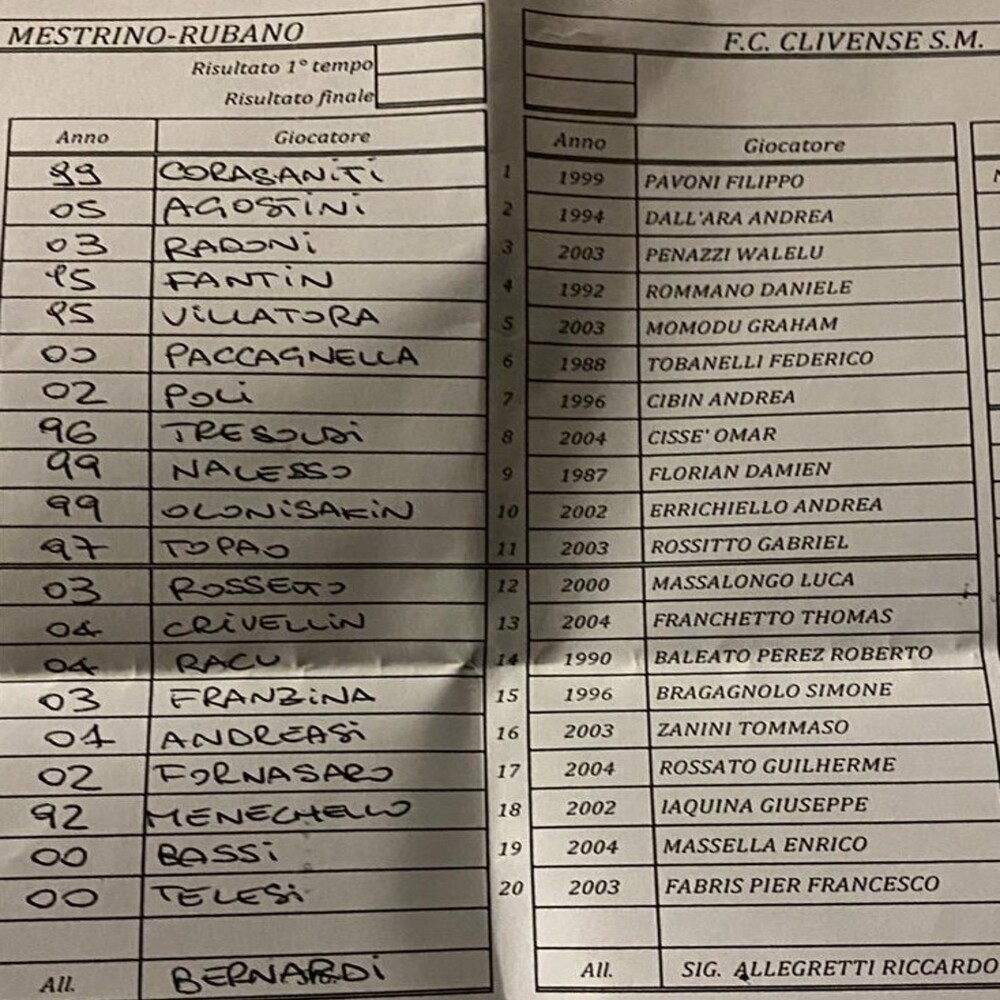 MESTRINO-RUBANO
Risultato 1° tempo
Risultato finale
Anno Giocatore
99 CORASANITI
05 AGOSTINI
03 RADONI
95 FANTIN
95 VILLATORA
00 PACCAGNELLA
02 POLI
96 TRESOLDI
99 NALESSO
99 OLONISAKIN
97 TOPAO
03 ROSSETO
04 CRIVELLIN
04 RACU
03 FRANZINA
01 ANDREASI
02 FORNASARO
92 MENEGHELLO
00 BASSI
00 TELESI
All. BERNARDI
F.C. CLIVENSE S.M.
Anno Giocatore
1 1999 PAVONI FILIPPO
2 1994 DALL'ARA ANDREA
3 2003 PENAZZI WALELU
4 1992 ROMMANO DANIELE
5 2003 MOMODU GRAHAM
6 1988 TOBANELLI FEDERICO
7 1996 CIBIN ANDREA
8 2004 CISSE' OMAR
9 1987 FLORIAN DAMIEN
10 2002 ERRICHIELLO ANDREA
11 2003 ROSSITTO GABRIEL
12 2000 MASSALONGO LUCA
13 2004 FRANCHETTO THOMAS
14 1990 BALEATO PEREZ ROBERTO
15 1996 BRAGAGNOLO SIMONE
16 2003 ZANINI TOMMASO
17 2004 ROSSATO GUILHERME
18 2002 IAQUINA GIUSEPPE
19 2004 MASSELLA ENRICO
20 2003 FABRIS PIER FRANCESCO
All. SIG. ALLEGRETTI RICCARDO